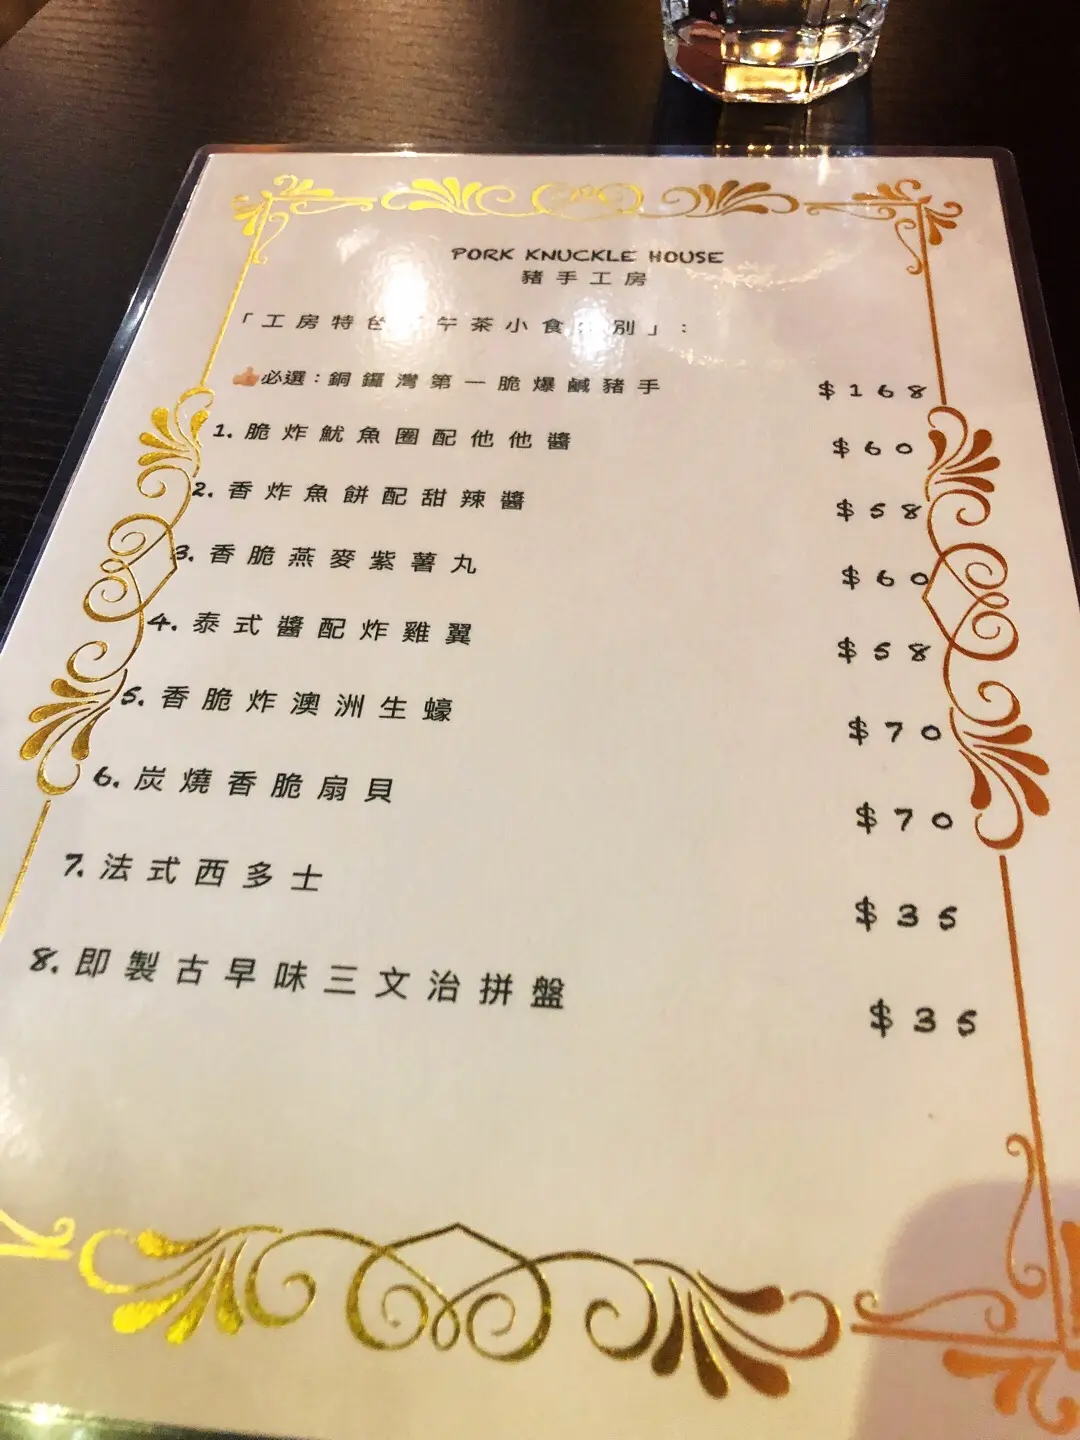 PORK KNUCKLE HOUSE
豬手工房
「工房特色下午茶小食類別」:
👍必選:銅鑼灣第一脆爆鹹豬手 $168
1. 脆炸魷魚圈配他他醬 $60
2. 香炸魚餅配甜辣醬 $58
3. 香脆燕麥紫薯丸 $60
4. 泰式醬配炸雞翼 $58
5. 香脆炸澳洲生蠔 $70
6. 炭燒香脆扇貝 $70
7. 法式西多士 $35
8. 即製古早味三文治拼盤 $35